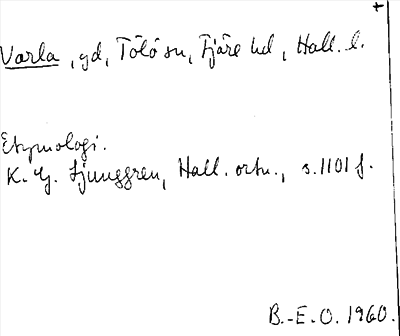 Varla, gd, Tölö sn, Fjäre hd, Hall. l.
Etymologi.
K. G. Ljunggren, Hall. ortn., s. 1101 f.
B.-E. O. 1960.